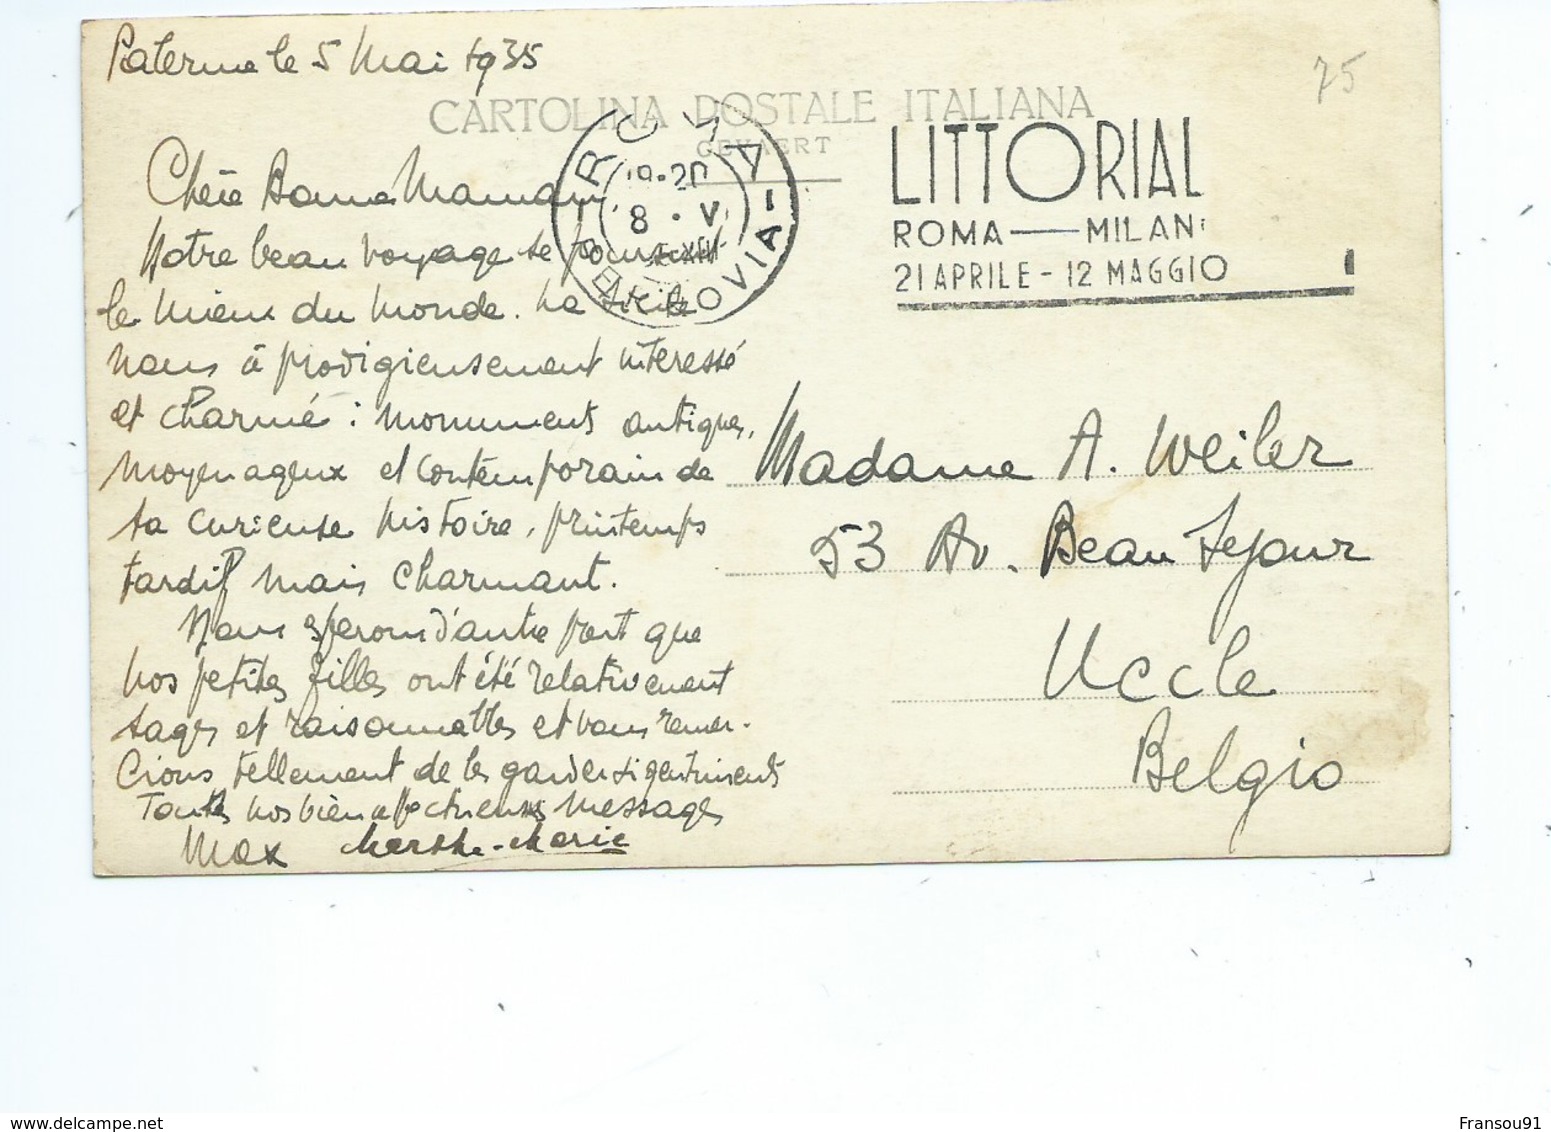 Palerme le 5 Mai 1935
75
CARTOLINA POSTALE ITALIANA
GEVAERT
LITTORIAL
ROMA — MILAN
21 APRILE - 12 MAGGIO
19-20
8 . V.
XIII
FERROVIA
Chère Bonne Maman,
Notre beau voyage se poursuit
le mieux du monde. La Sicile
nous à prodigieusement interessé
et charmé : monuments antiques,
moyenageux et contemporain de
sa curieuse histoire, printemps
tardif mais charmant.
Nous esperons d'autre part que
nos petites filles ont été relativement
sages et raisonnables et vous remer-
cions tellement de les garder si gentiment
Toutes nos bien affectueuses messages
Max Marthe-Marie
Madame A. Weiler
53 Av. Beau Sejour
Uccle
Belgio
www.delcampe.net
Fransou91